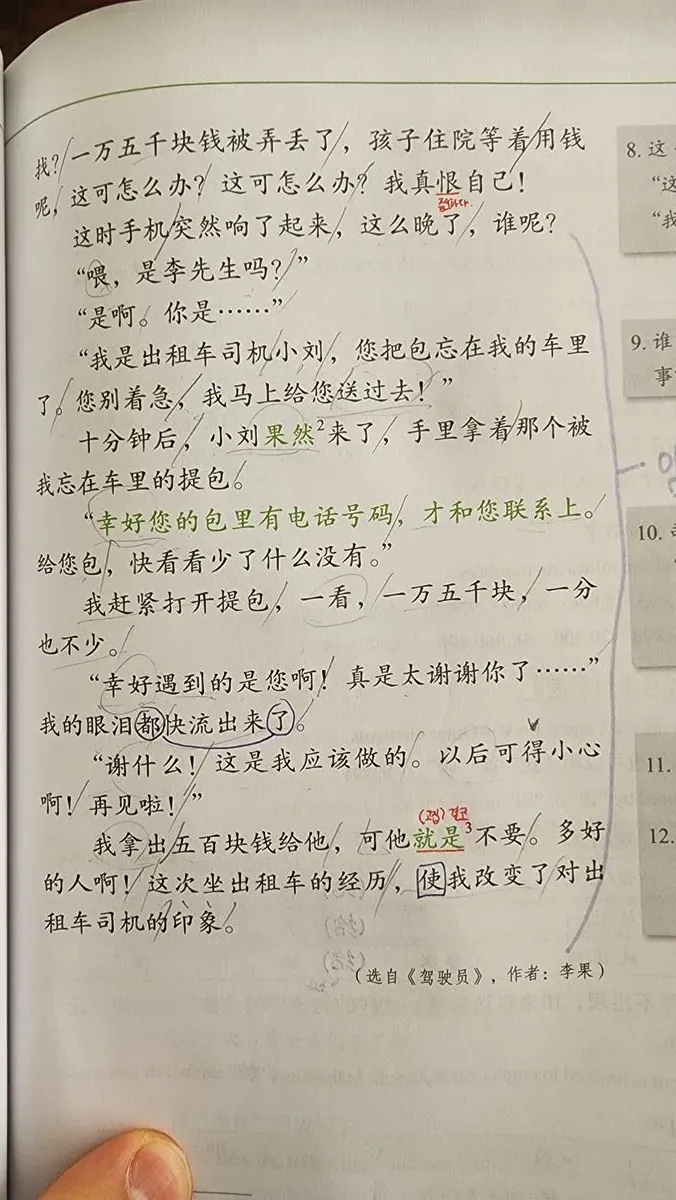 找？一万五千块钱被弄丢了，孩子住院等着用钱
呢，这可怎么办？这可怎么办？我真恨自己！
这时手机突然响了起来，这么晚了，谁呢？
“喂，是李先生吗？”
“是啊。你是……”
“我是出租车司机小刘，您把包忘在我的车里
了。您别着急，我马上给您送过去！”
十分钟后，小刘果然²来了，手里拿着那个被
我忘在车里的提包。
“幸好您的包里有电话号码，才和您联系上。
给您包，快看看少了什么没有。”
我赶紧打开提包，一看，一万五千块，一分
也不少。
“幸好遇到的是您啊！真是太谢谢你了……”
我的眼泪都快流出来了。
“谢什么！这是我应该做的。以后可得小心
啊！再见啦！”
我拿出五百块钱给他，可他就是³不要。多好
的人啊！这次坐出租车的经历，使我改变了对出
租车司机的印象。
（选自《驾驶员》，作者：李果）
8. 这
“这
“我
9. 谁
事
10.
11.
12.